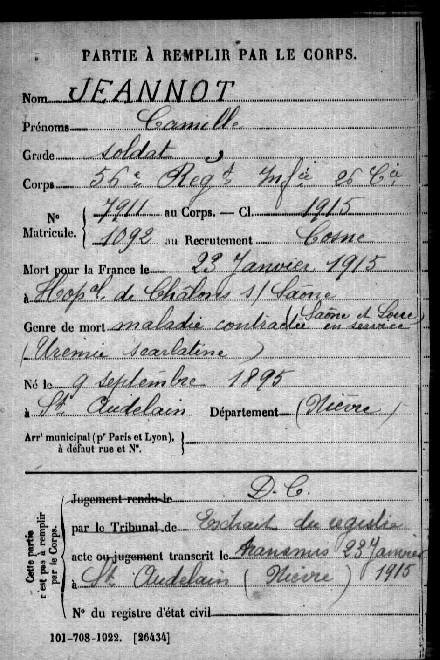 PARTIE À REMPLIR PAR LE CORPS.
Nom JEANNOT
Prénoms Camille
Grade soldat
Corps 56e Regt Infie 26 Cie
N° Matricule. { 7911 au Corps. — Cl. 1915
1092 au Recrutement Cosne
Mort pour la France le 23 Janvier 1915
à Hopal de Châlons s/ Saone
(Saône et Loire)
Genre de mort maladie contractée en service
(Uremie scarlatine)
Né le 9 septembre 1895
à St Audelain Département (Nièvre)
Arrt municipal (pr Paris et Lyon),
à défaut rue et N°.
Cette partie n'est pas à remplir par le Corps.
Jugement rendu le D. C.
par le Tribunal de Extrait du registre
acte ou jugement transcrit le transmis 23 Janvier 1915
à St Audelain (Nièvre)
N° du registre d'état civil
101-708-1922. [26434]